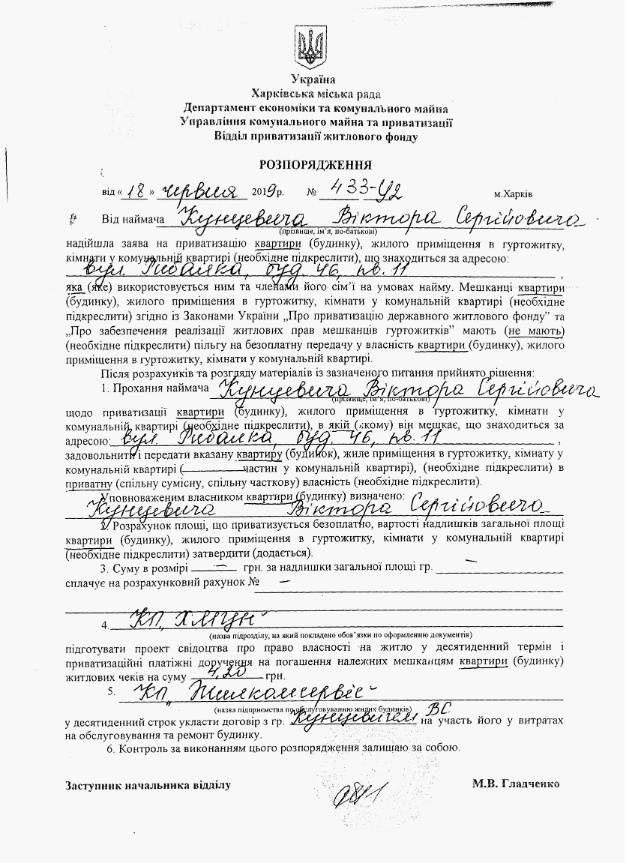 Україна
Харківська міська рада
Департамент економіки та комунального майна
Управління комунального майна та приватизації
Відділ приватизації житлового фонду
РОЗПОРЯДЖЕННЯ
від « 18 » червня 2019р. № 433-У2 м.Харків
Від наймача Кунцевича Віктора Сергійовича
(прізвище, ім'я, по-батькові)
надійшла заява на приватизацію квартири (будинку), жилого приміщення в гуртожитку,
кімнати у комунальній квартирі (необхідне підкреслити), що знаходиться за адресою:
вул. Рибалка, буд 46, кв. 11 ,
яка (яке) використовується ним та членами його сім'ї на умовах найму. Мешканці квартири
(будинку), жилого приміщення в гуртожитку, кімнати у комунальній квартирі (необхідне
підкреслити) згідно із Законами України „Про приватизацію державного житлового фонду" та
„Про забезпечення реалізації житлових прав мешканців гуртожитків" мають (не мають)
(необхідне підкреслити) пільгу на безоплатну передачу у власність квартири (будинку), жилого
приміщення в гуртожитку, кімнати у комунальній квартирі.
Після розрахунків та розгляду матеріалів із зазначеного питання прийнято рішення:
1. Прохання наймача Кунцевича Віктора Сергійовича
(прізвище, ім'я, по-батькові)
щодо приватизації квартири (будинку), жилого приміщення в гуртожитку, кімнати у
комунальній квартирі (необхідне підкреслити), в якій (якому) він мешкає, що знаходиться за
адресою: вул. Рибалка, буд. 46, кв. 11 ,
задовольнити і передати вказану квартиру (будинок), жиле приміщення в гуртожитку, кімнату у
комунальній квартирі ( частин у комунальній квартирі), (необхідне підкреслити) в
приватну (спільну сумісну, спільну часткову) власність (необхідне підкреслити).
Уповноваженим власником квартири (будинку) визначено:
Кунцевича Віктора Сергійовича
2. Розрахунок площі, що приватизується безоплатно, вартості надлишків загальної площі
квартири (будинку), жилого приміщення в гуртожитку, кімнати у комунальній квартирі
(необхідне підкреслити) затвердити (додається).
3. Суму в розмірі — грн. за надлишки загальної площі гр. —
сплачує на розрахунковий рахунок № —
4. КП „ХМЦН"
(назва підрозділу, на який покладено обов'язки по оформленню документів)
підготувати проект свідоцтва про право власності на житло у десятиденний термін і
приватизаційні платіжні доручення на погашення належних мешканцям квартири (будинку)
житлових чеків на суму 4,20 грн.
5. КП „Жилкомсервіс"
(назва підприємства по обслуговуванню жилих будинків)
у десятиденний строк укласти договір з гр. Кунцевичем ВС на участь його у витратах
на обслуговування та ремонт будинку.
6. Контроль за виконанням цього розпорядження залишаю за собою.
Заступник начальника відділу М.В. Гладченко